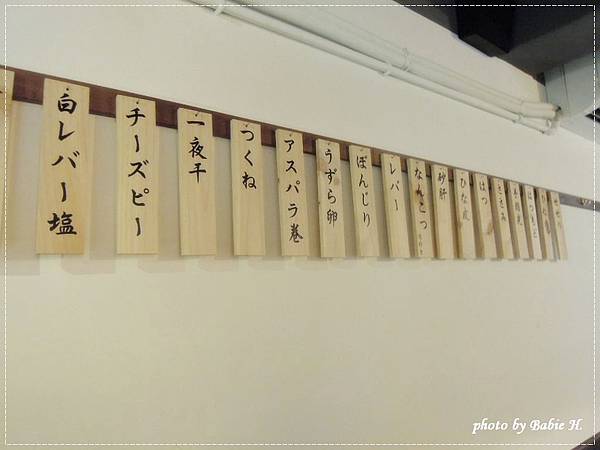 白レバー塩
チーズピー
一夜干
つくね
アスパラ巻
うずら卵
ぼんじり
レバー
なんこつ
砂肝
ひな皮
はつ
ささみ
photo by Babie H.